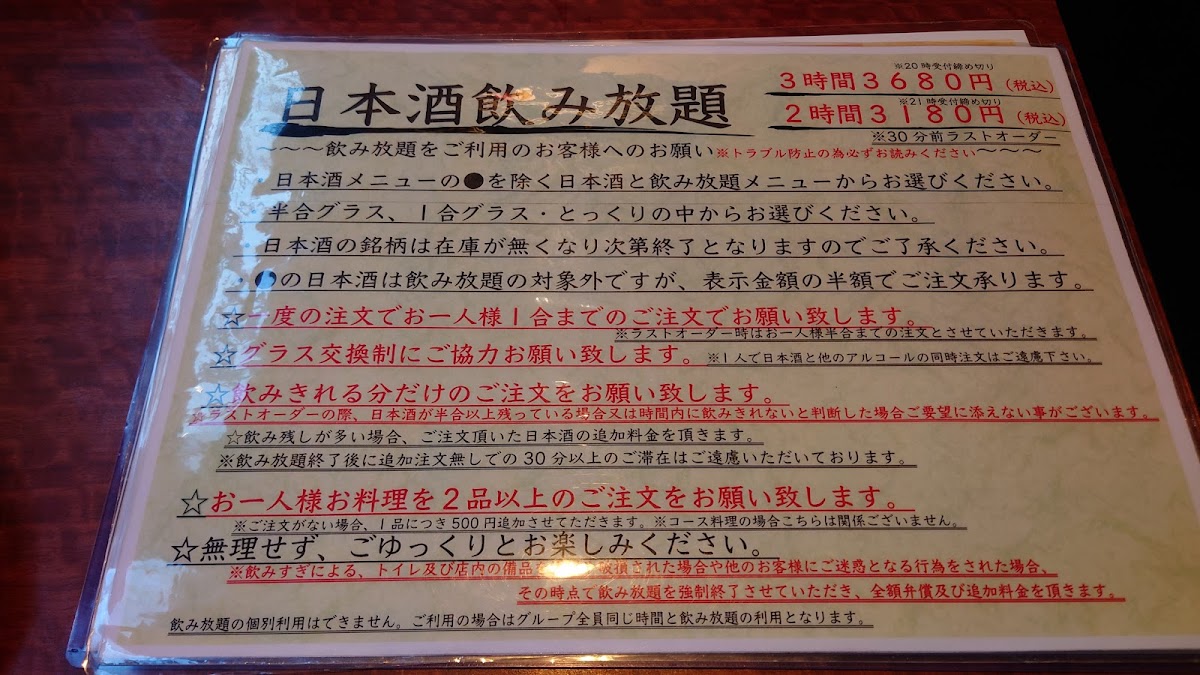 ※20時受付締め切り
3時間3680円(税込)
日本酒飲み放題
※21時受付締め切り
2時間3180円(税込)
※30分前ラストオーダー
～～～飲み放題をご利用のお客様へのお願い※トラブル防止の為必ずお読みください～～～
日本酒メニューの●を除く日本酒と飲み放題メニューからお選びください。
半合グラス、1合グラス・とっくりの中からお選びください。
・日本酒の銘柄は在庫が無くなり次第終了となりますのでご了承ください。
・●の日本酒は飲み放題の対象外ですが、表示金額の半額でご注文承ります。
☆一度の注文でお一人様1合までのご注文でお願い致します。
※ラストオーダー時はお一人様半合までの注文とさせていただきます。
☆グラス交換制にご協力お願い致します。※1人で日本酒と他のアルコールの同時注文はご遠慮下さい。
☆飲みきれる分だけのご注文をお願い致します。
※ラストオーダーの際、日本酒が半合以上残っている場合又は時間内に飲みきれないと判断した場合ご要望に添えない事がございます。
☆飲み残しが多い場合、ご注文頂いた日本酒の追加料金を頂きます。
※飲み放題終了後に追加注文無しでの30分以上のご滞在はご遠慮いただいております。
☆お一人様お料理を2品以上のご注文をお願い致します。
※ご注文がない場合、1品につき500円追加させてただきます。※コース料理の場合こちらは関係ございません。
☆無理せず、ごゆっくりとお楽しみください。
※飲みすぎによる、トイレ及び店内の備品 破損された場合や他のお客様にご迷惑となる行為をされた場合、
その時点で飲み放題を強制終了させていただき、全額弁償及び追加料金を頂きます。
飲み放題の個別利用はできません。ご利用の場合はグループ全員同じ時間と飲み放題の利用となります。